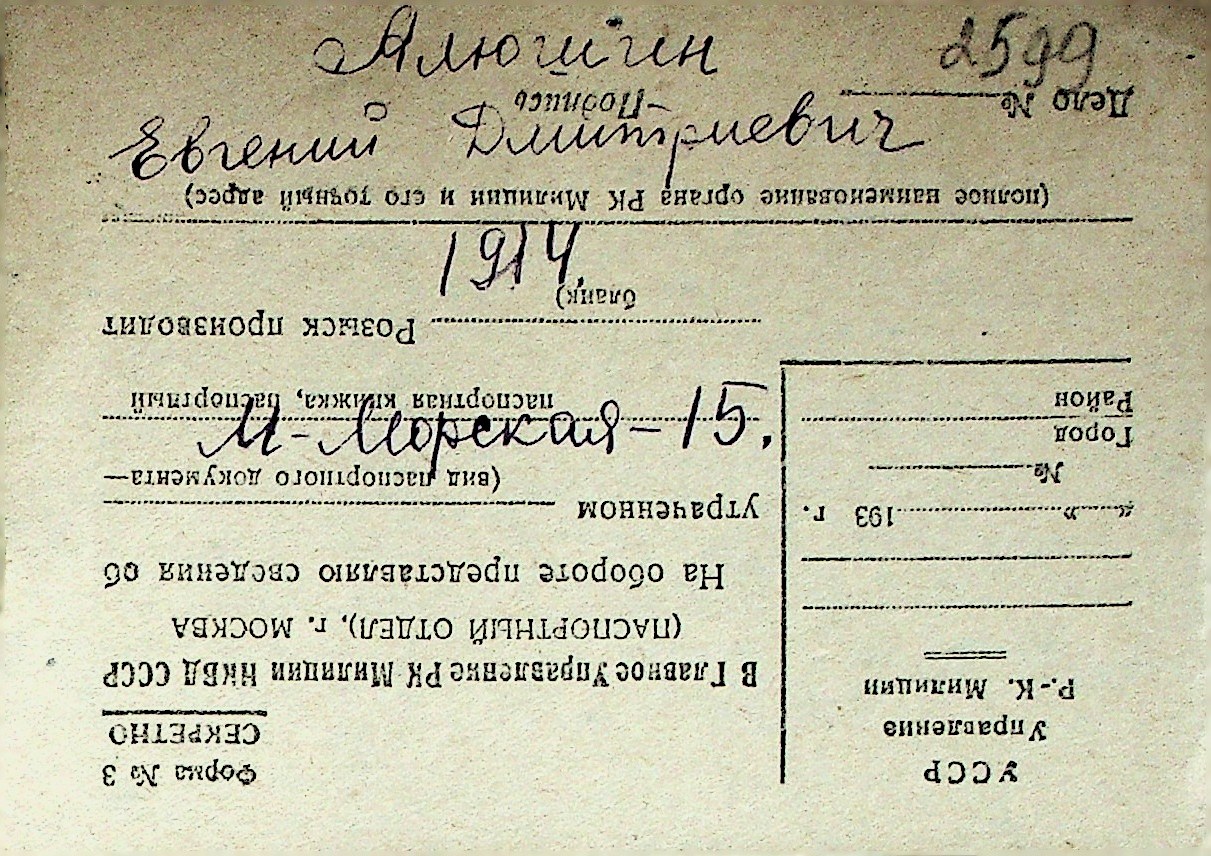 Алюшин 2599
Евгений Дмитриевич
1914
М-Морская-15.
УССР
Управление
Р.-К. Милиции
" " 193 г.
№
Город
Район
Форма № 3
СЕКРЕТНО
В Главное Управление РК Милиции НКВД СССР
(ПАСПОРТНЫЙ ОТДЕЛ), г. МОСКВА
На обороте представляю сведения об
утраченном
(вид паспортного документа—
паспортная книжка, паспортный
бланк)
Розыск производит
(полное наименование органа РК Милиции и его точный адрес)
Дело №
Подпись